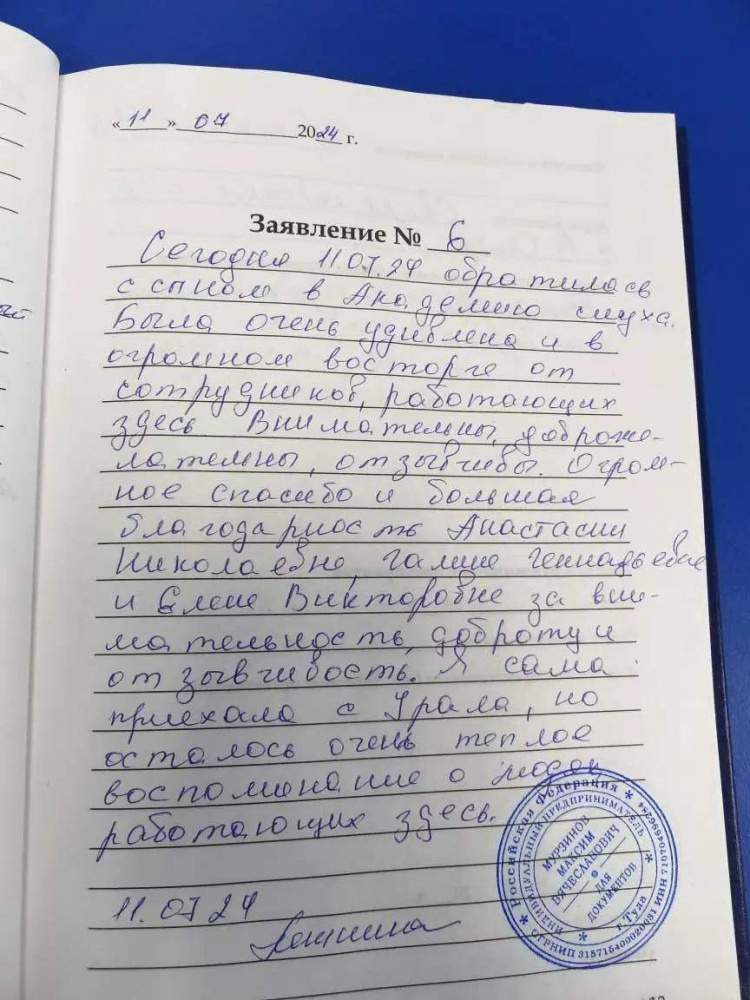 «11» 07 2024 г.
Заявление № 6
Сегодня 11.07.24 обратилась
с сыном в Академию слуха.
Была очень удивлена и в
огромном восторге от
сотрудников, работающих
здесь Внимательны, доброже-
лательны, отзывчивы. Огром-
ное спасибо и большая
благодарность Анастасии
Николаевне, Галине Геннадьевне
и Елене Викторовне за вни-
мательность, доброту и
отзывчивость. Я сама
приехала с Урала, но
осталось очень теплое
воспоминание о людях
работающих здесь.
11.07 24
Российская Федерация
ИНДИВИДУАЛЬНЫЙ ПРЕДПРИНИМАТЕЛЬ
МУРЗИНОВ
МАКСИМ
ВЯЧЕСЛАВОВИЧ
ДЛЯ
ДОКУМЕНТОВ
г.Тула